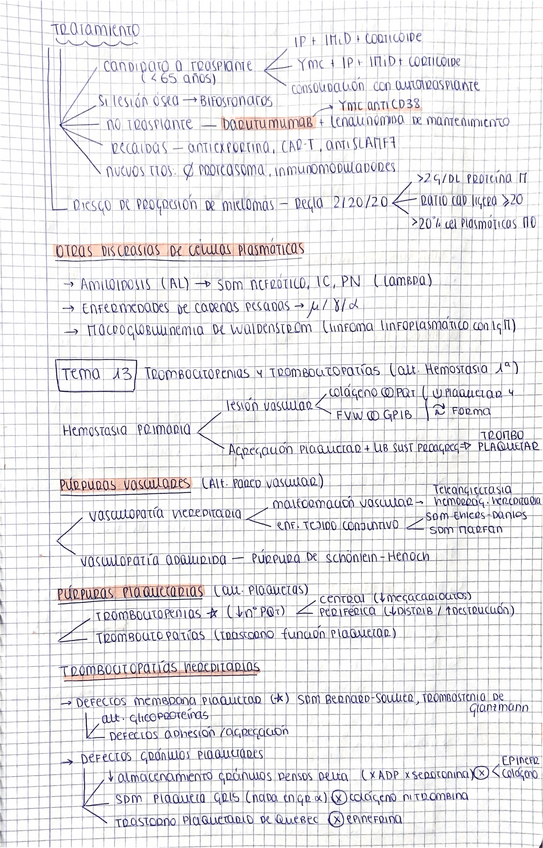 TRATAMIENTO
CANDIDATO A TRASPLANTE (<65 AÑOS)
IP + IMiD + CORTICOIDE
YMC + IP + IMiD + CORTICOIDE
CONSOLIDACIÓN CON AUTOTRASPLANTE
SI LESIÓN ÓSEA → BIFOSFONATOS
→ YMC ANTICD38
NO TRASPLANTE — DARUTUMUMAB + LENALINOMINA DE MANTENIMIENTO
RECAIDAS – ANTIEXPORTINA, CAR-T, ANTISLAMF7
NUEVOS TTOS: Ø PROTEASOMA, INMUNOMODULADORES
RIESGO DE PROGRESIÓN DE MIELOMAS – REGLA 2/20/20
>2G/DL PROTEÍNA M
RATIO CAD LIGERA ≥20
>20% CEL PLASMÁTICAS MO
OTRAS DISCRASIAS DE CÉLULAS PLASMÁTICAS
→ AMILOIDOSIS (AL) → SDM NEFRÓTICO, IC, PN (LAMBDA)
→ ENFERMEDADES DE CADENAS PESADAS → μ/γ/α
→ MACROGLOBULINEMIA DE WALDENSTROM (LINFOMA LINFOPLASMÁTICO CON IgM)
TEMA 13 TROMBOCITOPENIAS Y TROMBOCITOPATÍAS (ALT. HEMOSTASIA 1ª)
HEMOSTASIA PRIMARIA
LESIÓN VASCULAR
COLÁGENO PQT
FVW GPIB
FORMA
AGREGACIÓN PLAQUETAR + LIB SUST PROAGREG ⇒ TROMBO PLAQUETAR
PÚRPURAS VASCULARES (ALT. PARED VASCULAR)
VASCULOPATÍA HEREDITARIA
MALFORMACIÓN VASCULAR – TELANGIECTASIA HEMORRAG. HEREDITARIA
ENF. TEJIDO CONJUNTIVO
SDM EHLERS-DANLOS
SDM MARFAN
VASCULOPATÍA ADQUIRIDA — PÚRPURA DE SCHÖNLEIN-HENOCH
PÚRPURAS PLAQUETARIAS (ALT. PLAQUETAS)
TROMBOCITOPENIAS ★ (↓nº PQT)
CENTRAL (↓MEGACARIOCITOS)
PERIFÉRICA (↓DISTRIB / ↑DESTRUCCIÓN)
TROMBOCITOPATÍAS (TRASTORNO FUNCIÓN PLAQUETAR)
TROMBOCITOPATÍAS HEREDITARIAS
→ DEFECTOS MEMBRANA PLAQUETAR (★) SDM BERNARD-SOULIER, TROMBASTENIA DE GLANTZMANN
ALT. GLICOPROTEÍNAS
DEFECTOS ADHESIÓN/AGREGACIÓN
→ DEFECTOS GRÁNULOS PLAQUETARES
↓ ALMACENAMIENTO GRÁNULOS DENSOS DELTA (XADP XSEROTONINA) ⓧ
EPINEFR
COLÁGENO
SDM PLAQUETA GRIS (NADA EN GR α) ⓧ COLÁGENO NI TROMBINA
TRASTORNO PLAQUETARIO DE QUEBEC ⓧ EPINEFRINA